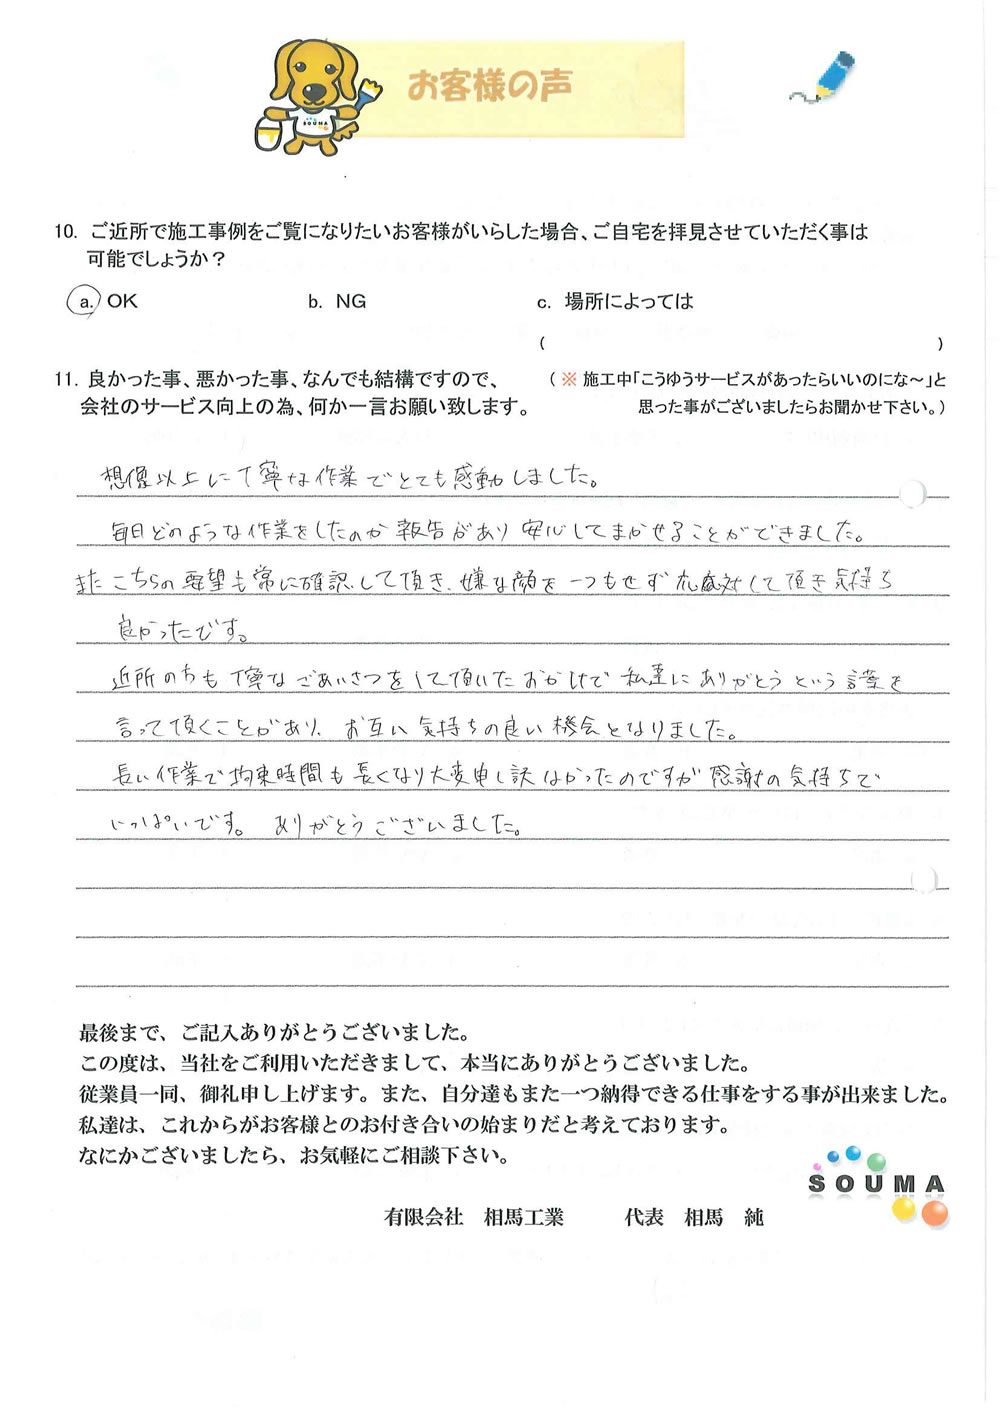 お客様の声
SOUMA
10. ご近所で施工事例をご覧になりたいお客様がいらした場合、ご自宅を拝見させていただく事は
可能でしょうか？
a. OK b. NG c. 場所によっては
( )
11. 良かった事、悪かった事、なんでも結構ですので、 (※ 施工中「こうゆうサービスがあったらいいのにな～」と
会社のサービス向上の為、何か一言お願い致します。 思った事がございましたらお聞かせ下さい。)
想像以上に丁寧な作業でとても感動しました。
毎日どのような作業をしたのか報告があり安心してまかせることができました。
またこちらの要望も常に確認して頂き、嫌な顔を一つもせず対応して頂き気持ち
良かったです。
近所の方も丁寧なごあいさつをして頂いたおかげで私達にありがとうという言葉を
言って頂くことがあり、お互い気持ちの良い機会となりました。
長い作業で拘束時間も長くなり大変申し訳なかったのですが感謝の気持ちで
いっぱいです。 ありがとうございました。
最後まで、ご記入ありがとうございました。
この度は、当社をご利用いただきまして、本当にありがとうございました。
従業員一同、御礼申し上げます。また、自分達もまた一つ納得できる仕事をする事が出来ました。
私達は、これからがお客様とのお付き合いの始まりだと考えております。
なにかございましたら、お気軽にご相談下さい。
SOUMA
有限会社 相馬工業 代表 相馬 純